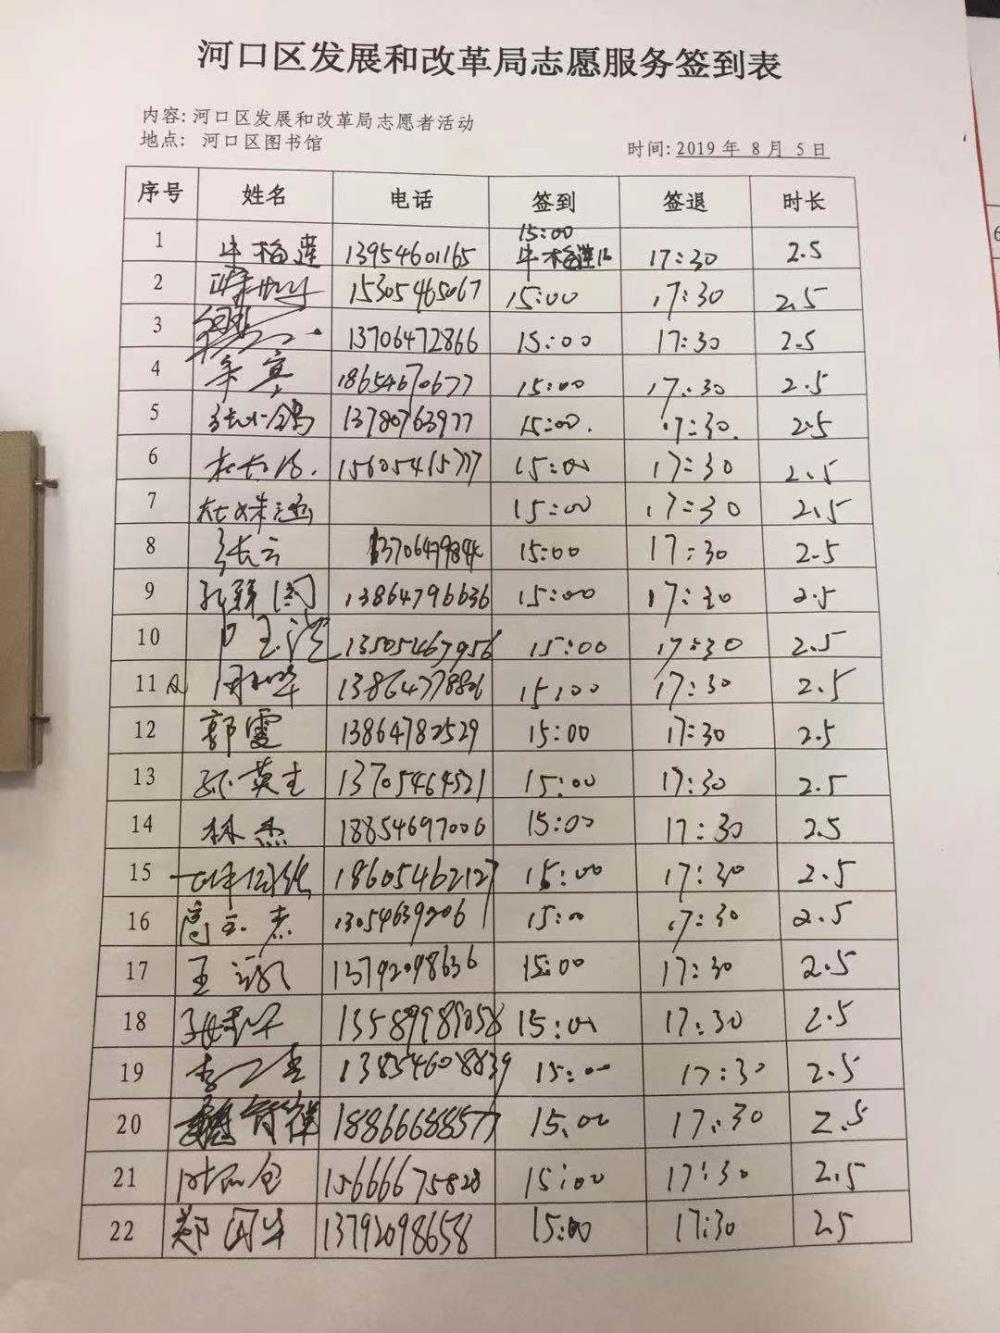 河口区发展和改革局志愿服务签到表
内容: 河口区发展和改革局志愿者活动
地点: 河口区图书馆
时间: 2019 年 8 月 5 日
序号 姓名 电话 签到 签退 时长
15:00
1 牛梅莲 13954601165 牛梅莲 17:30 2.5
2 15305465067 15:00 17:30 2.5
3 13706472866 15:00 17:30 2.5
4 18654670677 15:00 17:30 2.5
5 张小鸽 13780763977 15:00. 17:30. 2.5
6 15605465777 15:00 17:30 2.5
7 杜姝涵 15:00 17:30 2.5
8 张云 15:00 17:30 2.5
9 13864796636 15:00 17:30 2.5
10 13505467956 15:00 17:30 2.5
11 13864778806 15:00 17:30 2.5
12 郭霞 13864782529 15:00 17:30 2.5
13 孙英杰 13705464521 15:00 17:30 2.5
14 林杰 18854697006 15:00 17:30 2.5
15 18605462127 15:00 17:30 2.5
16 高玉杰 13054639206 15:00 17:30 2.5
17 王 13792098636 15:00 17:30 2.5
18 13589989058 15:00 17:30 2.5
19 13854608839 15:00 17:30 2.5
20 魏智祥 18866688577 15:00 17:30 2.5
21 15666675828 15:00 17:30 2.5
22 郑国华 13792098658 15:00 17:30 2.5